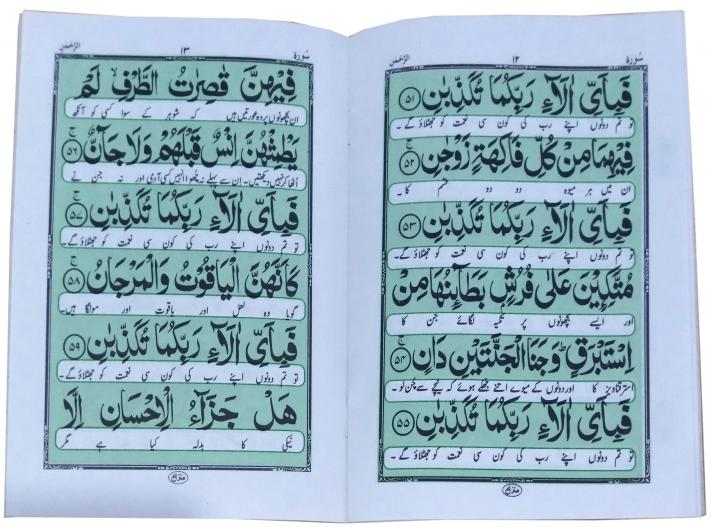 سُورَة ١٢ الرَّحْمٰن
فَبِأَيِّ اٰلَآءِ رَبِّكُمَا تُكَذِّبٰنِ ٥١
تو تم دونوں اپنے رب کی کون سی نعمت کو جھٹلاؤ گے۔
فِيْهِمَا مِنْ كُلِّ فَاكِهَةٍ زَوْجٰنِ ج ٥٢
ان میں ہر میوہ دو دو قسم کا۔
فَبِأَيِّ اٰلَآءِ رَبِّكُمَا تُكَذِّبٰنِ ٥٣
تو تم دونوں اپنے رب کی کون سی نعمت کو جھٹلاؤ گے۔
مُتَّكِـِٕيْنَ عَلٰى فُرُشٍۭ بَطَآئِنُهَا مِنْ
اور ایسے بچھونوں پر تکیہ لگائے جن کا
اِسْتَبْرَقٍ ط وَجَنَا الْجَنَّتَيْنِ دَانٍ ج ٥٤
استر قنادیز کا اور دونوں کے میوے اتنے جھکے ہوئے کہ نیچے سے چن لو۔
فَبِأَيِّ اٰلَآءِ رَبِّكُمَا تُكَذِّبٰنِ ٥٥
تو تم دونوں اپنے رب کی کون سی نعمت کو جھٹلاؤ گے۔
منزل
سُورَة ١٣ الرَّحْمٰن
فِيْهِنَّ قٰصِرٰتُ الطَّرْفِ لَمْ
ان بچھونوں پر وہ عورتیں ہیں کہ شوہر کے سوا کسی کو آنکھ
يَطْمِثْهُنَّ اِنْسٌ قَبْلَهُمْ وَلَا جَآنٌّ ج ٥٦
اٹھا کر نہیں دیکھتیں۔ ان سے پہلے نہ چھوا انہیں کسی آدمی اور نہ جن نے
فَبِأَيِّ اٰلَآءِ رَبِّكُمَا تُكَذِّبٰنِ ج ٥٧
تو تم دونوں اپنے رب کی کون سی نعمت کو جھٹلاؤ گے۔
كَاَنَّهُنَّ الْيَاقُوْتُ وَالْمَرْجَانُ ج ٥٨
گویا وہ لعل اور یاقوت اور مونگا ہیں۔
فَبِأَيِّ اٰلَآءِ رَبِّكُمَا تُكَذِّبٰنِ ٥٩
تو تم دونوں اپنے رب کی کون سی نعمت کو جھٹلاؤ گے۔
هَلْ جَزَآءُ الْاِحْسَانِ اِلَّا
نیکی کا بدلہ کیا ہے مگر
منزل